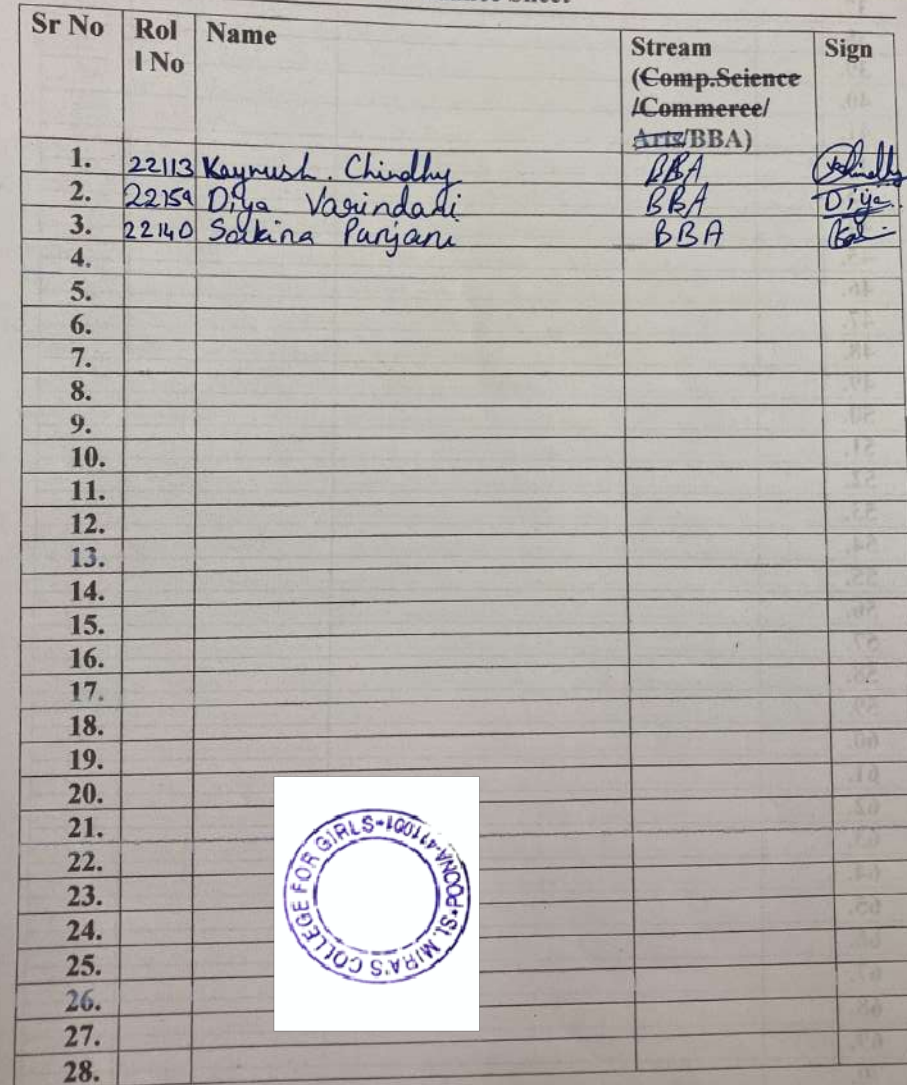 Sr No Rol l No Name Stream (Comp.Science /Commerce/ Arts/BBA) Sign
1. 22113 Kaynush. Chindhy BBA
2. 22159 Diya Varindani BBA Diya
3. 22140 Sakina Punjani BBA
4.
5.
6.
7.
8.
9.
10.
11.
12.
13.
14.
15.
16.
17.
18.
19.
20.
21.
22.
23.
24.
25.
26.
27.
28.
ST. MIRA'S COLLEGE FOR GIRLS*POONA-411001*